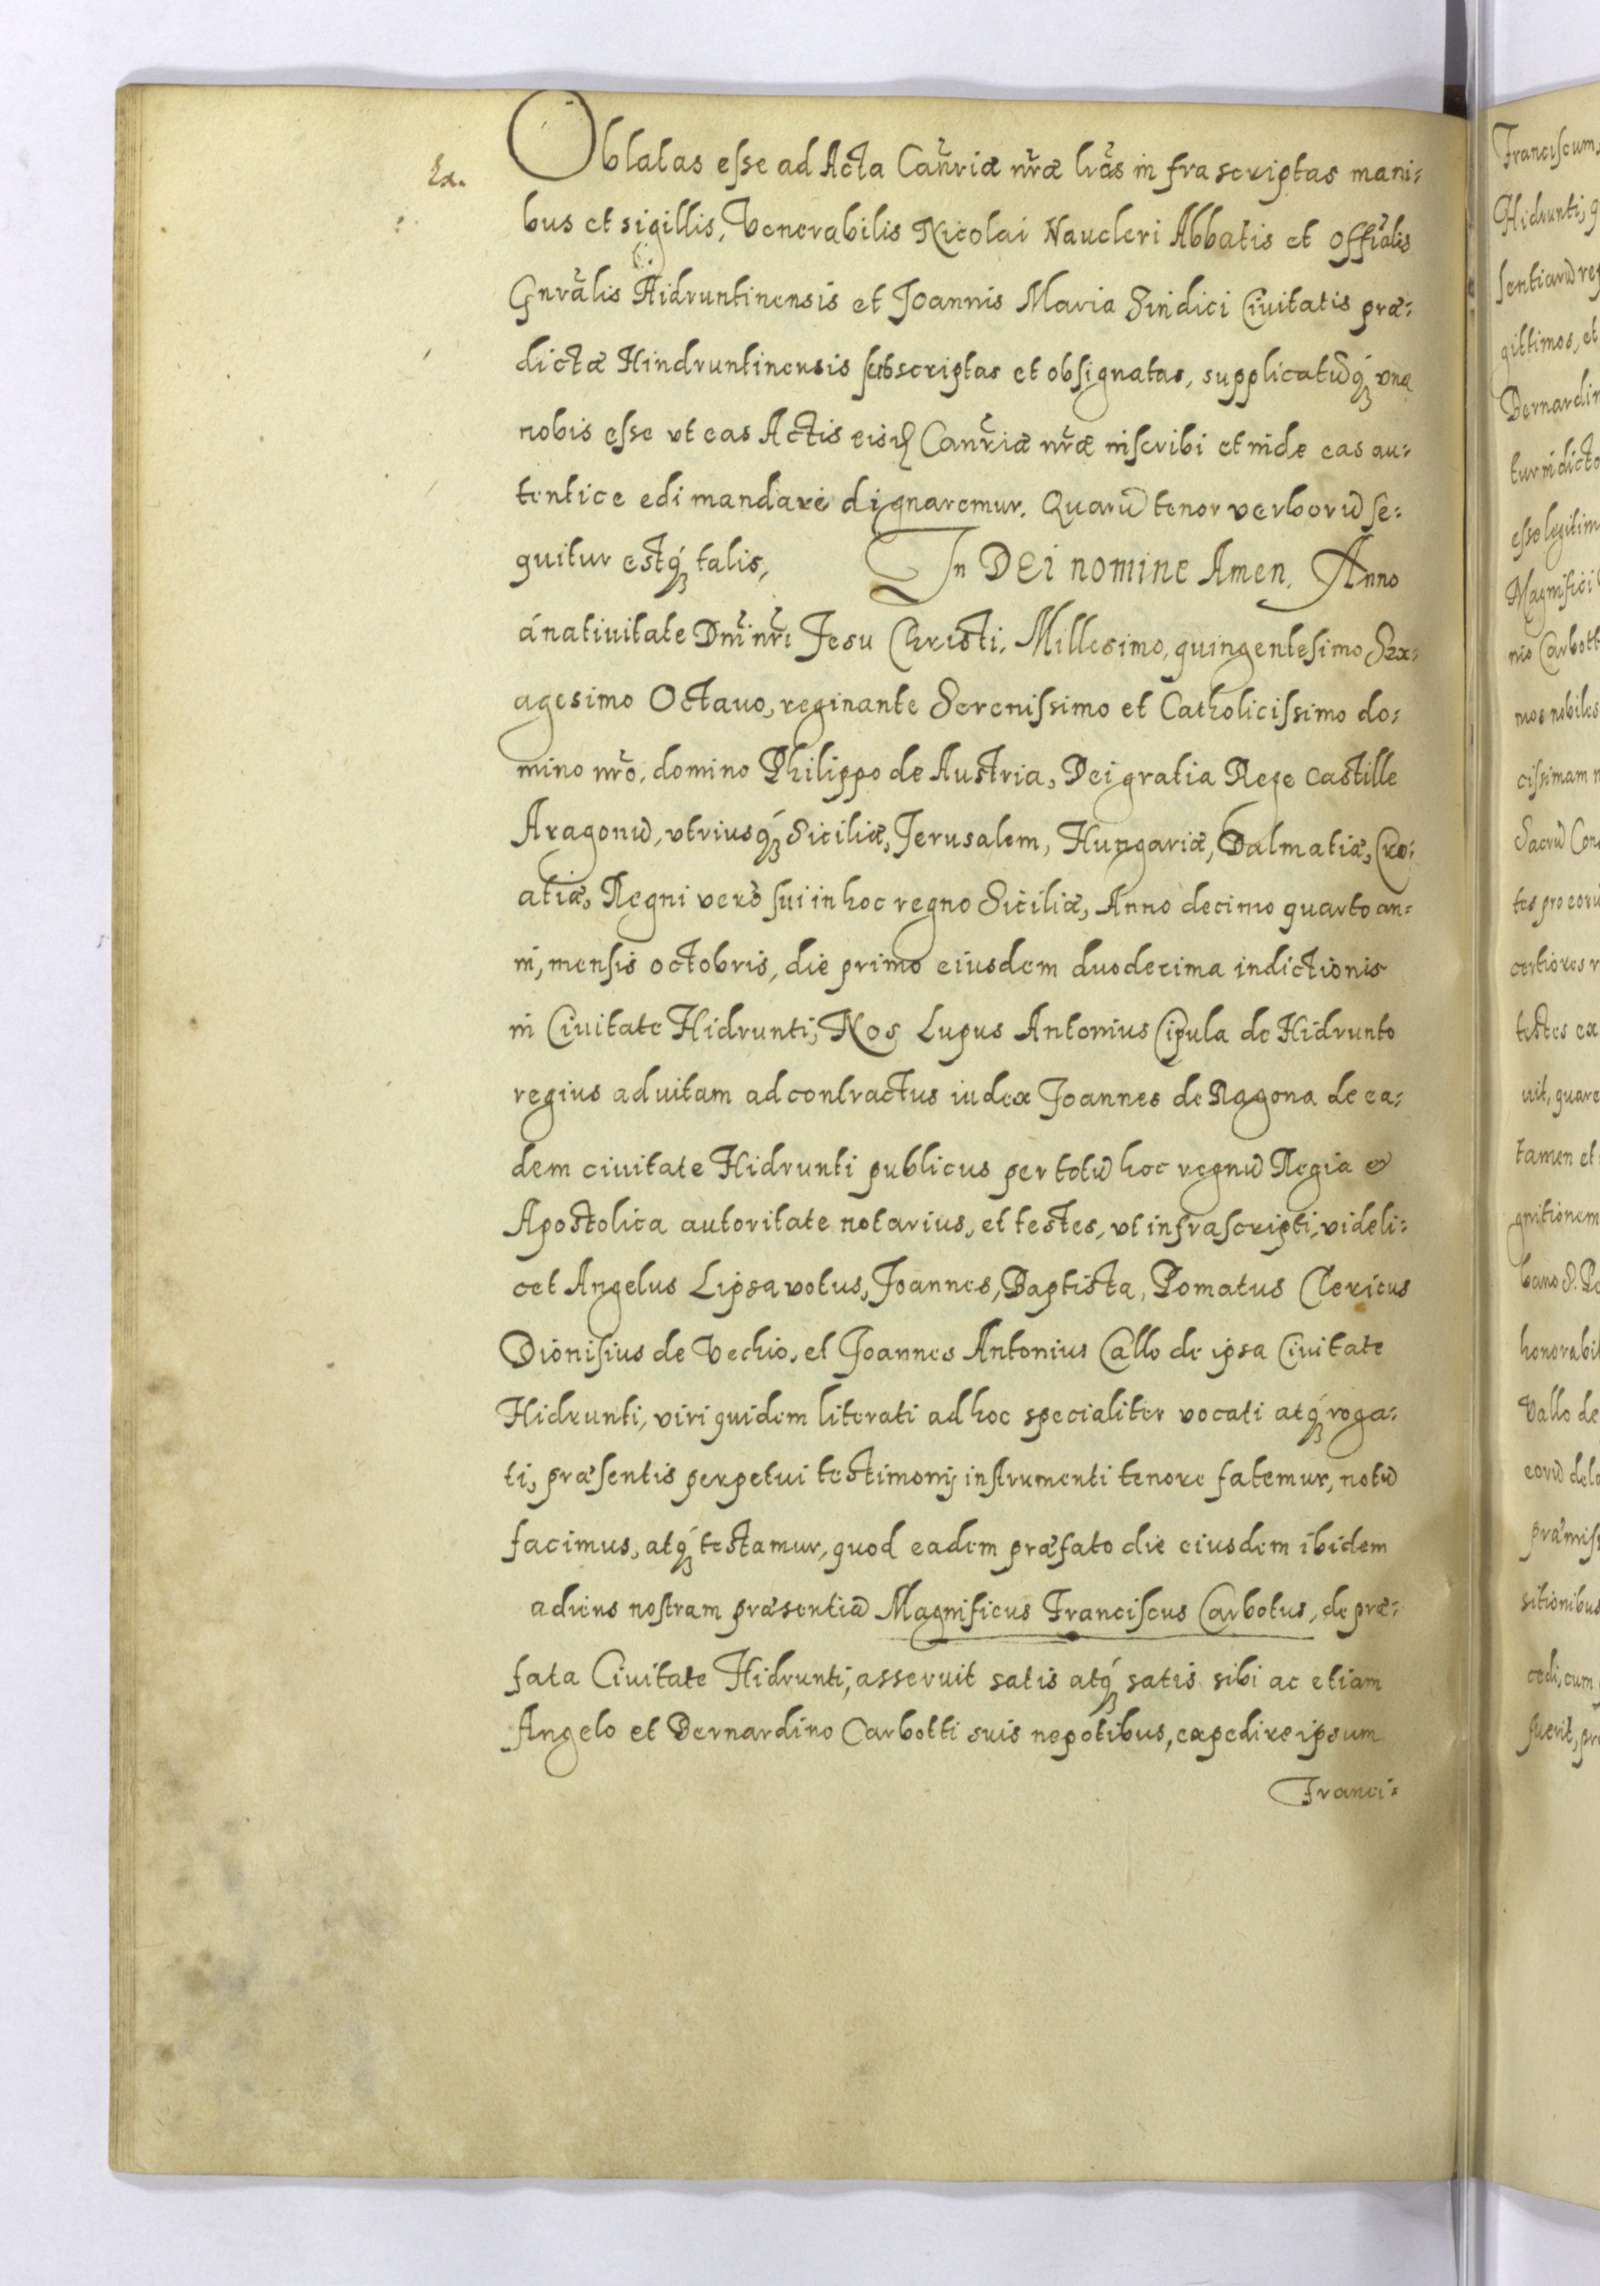 Ex.
Oblatas eſse ad Acta Canr̃iæ nr̃æ lr̃as in fra scriptas mani⸗
bus et sigillis, Venerabilis Nicolai Naucleri Abbatis et Offi͠alis
Gnr̃alis Hidruntinensis et Joannis Maria Sindici Ciuitatis præ⸗
dictæ Hindruntinensis ſubscriptas et obſignatas, supplicatũq́ꝫ una
nobis eſse ut eas Actis eisd Canr̃iæ nr̃æ inſcribi et inde eas au⸗
tentice edi mandare dignaremur. Quarũ tenor verborũ ſe⸗
quitur estq́ꝫ talis, In DEi nomine Amen. Anno
á natiuitate Dnĩ nr̃i Jesu Christi. Millesimo, quingenteſimo Sex⸗
agesimo Octauo, reginante Sereniſsimo et Catholiciſsimo do⸗
mino nr̃o, domino Philippo de Austria, Dei gratia Rege Castille
Aragonũ, utriusq́ꝫ Siciliæ, Jerusalem, Hungariæ, Dalmatiæ, Cro⸗
atiæ, Regni verò ſui in hoc regno Siciliæ, Anno decimo quarto an⸗
ni, menſis octobris, die primo eiusdem duodecima indictionis
in Ciuitate Hidrunti, Nos Lupus Antonius Cipula de Hidrunto
regius ad uitam ad contractus iudex Joannes de Ragona de ea⸗
dem ciuitate Hidrunti publicus per totũ hoc regnũ Regia &
Apostolica autoritate notarius, et testes, ut infraſcripti, videli⸗
cet Angelus Lipsavotus, Joannes, Baptista, Pomatus Clericus
Dioniſius de Vechio, et Joannes Antonius Callo de ipsa Ciuitate
Hidrunti, viri quidem literati ad hoc specialiter vocati atq́ꝫ roga⸗
ti, præſentis perpetui testimonij inſtrumenti tenore fatemur, notũ
facimus, atq́ꝫ testamur, quod eadem præfato die eiusdem ibidem
adiens noſtram præsentiã Magnificus Franciſcus Carbotus, de præ⸗
fata Ciuitate Hidrunti, asseruit satis atq́ꝫ satis sibi ac etiam
Angelo et Bernardino Carbotti suis nepotibus, expedire ipsum
Franci⸗
Franciſcum
Hidrunti, q
ſentiarũ re
gittimos, et
Bernardin
tur in dicto
eſse legitim
Magnifici
nio Carbott
mos nobiles
ciſsimam
Sacrũ Con
tes pro eorũ
certiores
testes ex
uit, quare
tamen et
gnitionem
bano
honorabil
Vallo de
eorũ
præmiſs
sitionibus
cedi, cum
fuerit, pr